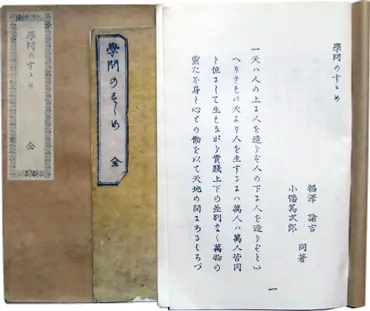 學問のすゝめ
福澤諭吉
小幡篤次郎
同著
一天ハ人の上ニ人を造らず人の下ニ人を造らずとい
へりされバ天より人を生ずるニハ萬人ハ萬人皆同
じ位にして生れながら貴賤上下の差別なく萬物の
靈たる身と心との働を以て天地の間にあるよろづ
一
學問のすゝめ 全
學問のすゝめ 全